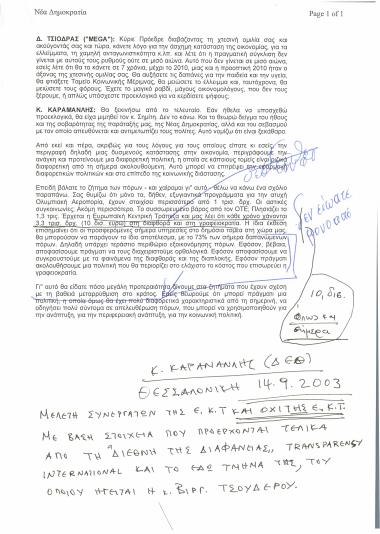 Νέα Δημοκρατία
Page 1 of 1
Δ. ΤΣΙΟΔΡΑΣ ("MEGA"): Κύριε Πρόεδρε διαβάζοντας τη χτεσινή ομιλία σας και
ακούγοντάς σας και τώρα, κάνετε λόγο για την άσχημη κατάσταση της οικονομίας, για
τα ελλείμματα, τη χαμηλή ανταγωνιστικότητα κ.λπ. και λέτε ότι η πραγματική σύγκλιση δεν
γίνεται με αυτούς τους ρυθμούς ούτε σε μισό αιώνα. Αυτό που δεν γίνεται σε μισό αιώνα,
εσείς λέτε ότι θα το κάνετε σε 7 χρόνια, μέχρι το 2010, μιας και η προοπτική 2010 ήταν ο
άξονας της χτεσινής ομιλίας σας. Θα αυξήσετε τις δαπάνες για την παιδεία και την υγεία,
θα φτιάξετε Ταμείο Κοινωνικής Μέριμνας, θα μειώσετε το έλλειμμα και, ταυτόχρονα, θα
μειώσετε τους φόρους. Έχετε το μαγικό ραβδί, μάγους οικονομολόγους, που δεν τους
ξέρουμε, ή απλώς υπόσχεστε προεκλογικά για να κερδίσετε ψήφους;
Κ. ΚΑΡΑΜΑΝΛΗΣ: Θα ξεκινήσω από το τελευταίο. Εαν ήθελα να υποσχεθώ
προεκλογικά, θα είχα μιμηθεί τον κ. Σημίτη. Δεν το κάνω. Και το θεωρώ δείγμα του ήθους
και της σοβαρότητας της παράταξής μας, της Νέας Δημοκρατίας, αλλά και του σεβασμού
με τον οποίο απευθύνεται και αντιμετωπίζει τους πολίτες. Αυτό νομίζω ότι είναι ξεκάθαρο.
Από εκεί και πέρα, ακριβώς για τους λόγους για τους οποίους είπατε κι εσείς, την
περιγραφή δηλαδή μιας δυσμενούς κατάστασης στην οικονομία, περιγράφουμε την
ανάγκη και προτείνουμε μια διαφορετική πολιτική, η οποία σε κάποιους τομείς είναι
διαφορετική από τη σήμερα ακολουθούμενη. Αυτό μπορεί να επιτρέψει την εφαρμογή
διαφορετικών πολιτικών και στο επίπεδο της κοινωνικής διάστασης.
Επειδή βάλατε το ζήτημα των πόρων - και χαίρομαι γι' αυτό - θέλω να κάνω ένα σχόλιο
παραπάνω. Σας θυμίζω ότι μόνο τα, δήθεν, εξυγιαντικά προγράμματα για την
Ολυμπιακή Αεροπορία, έχουν στοιχίσει περισσότερο από 1 τρισ. δρχ. Οι αστικές
συγκοινωνίες. Ακόμη περισσότερο. Το συσσωρευμένο βάρος από τον ΟΤΕ. Πλησιάζει το
1,3 τρις. Έρχεται η Ευρωπαϊκή Κεντρική Τράπεζα και μας λέει ότι κάθε χρόνο χάνονται
3,3 τρισ. δρχ. (10 δισ. ευρώ) στη διαφθορά και στη γραφειοκρατία. Η ίδια έκθεση
επισημαίνει ότι οι προσφερόμενες σήμερα υπηρεσίες στο δημόσιο τομέα στη χώρα μας,
θα μπορούσαν να φέρουν το ίδιο αποτέλεσμα, με το 73% των σήμερα δαπανώμενων
πόρων. Δηλαδή υπάρχει τεράστιο περιθώριο εξοικονόμησης πόρων. Εφόσον, βέβαια,
αποφασίσουμε αυτούς τους πόρους να τους διαχειριστούμε ορθολογικά. Εφόσον αποφασίσουμε να
συγκρουστούμε με τα φαινόμενα της διαφθοράς και της διαπλοκής. Εφόσον πράγματι
ακολουθήσουμε μια πολιτική που θα περιορίζει στο ελάχιστο το κόστος που επισωρεύει η
γραφειοκρατία.
Γι' αυτό θα είδατε πόσο μεγάλη προτεραιότητα δίνουμε στα ζητήματα που έχουν σχέση
με τη βαθειά μεταρρύθμιση στο κράτος. Εμείς θεωρούμε ότι μπορεί πράγματι μια
πολιτική, η οποία όμως θα έχει πολύ διαφορετικά χαρακτηριστικά από τη σημερινή, να
οδηγήσει πολύ σύντομα σε απελευθέρωση πόρων, που μπορούμε να χρησιμοποιηθούν για
την ανάπτυξη, για την περιφερειακή ανάπτυξη, για την κοινωνική πολιτική.
10, δισ.
σήμερα
Κ. ΚΑΡΑΜΑΝΛΗΣ (ΔΕΘ)
ΘΕΣΣΑΛΟΝΙΚΗ 14.9.2003
ΜΕΛΕΤΗ ΣΥΝΕΡΓΑΤΩΝ ΤΗΣ Ε.Κ.Τ ΚΑΙ ΟΧΙ ΤΗΣ Ε.Κ.Τ.
ΜΕ ΒΑΣΗ ΣΤΟΙΧΕΙΑ ΠΟΥ ΠΡΟΕΡΧΟΝΤΑΙ ΤΕΛΙΚΑ
ΑΠΟ ΤΗ "ΔΙΕΘΝΗ ΤΗΣ ΔΙΑΦΑΝΕΙΑΣ,, TRANSPARENSY
INTERNATIONAL ΚΑΙ ΤΟ ΕΔΩ ΤΜΗΜΑ ΤΗΣ, ΤΟΥ
ΟΠΟΙΟΥ ΗΓΕΙΤΑΙ Η Κ. ΒΙΡΓ. ΤΣΟΥΔΕΡΟΥ.